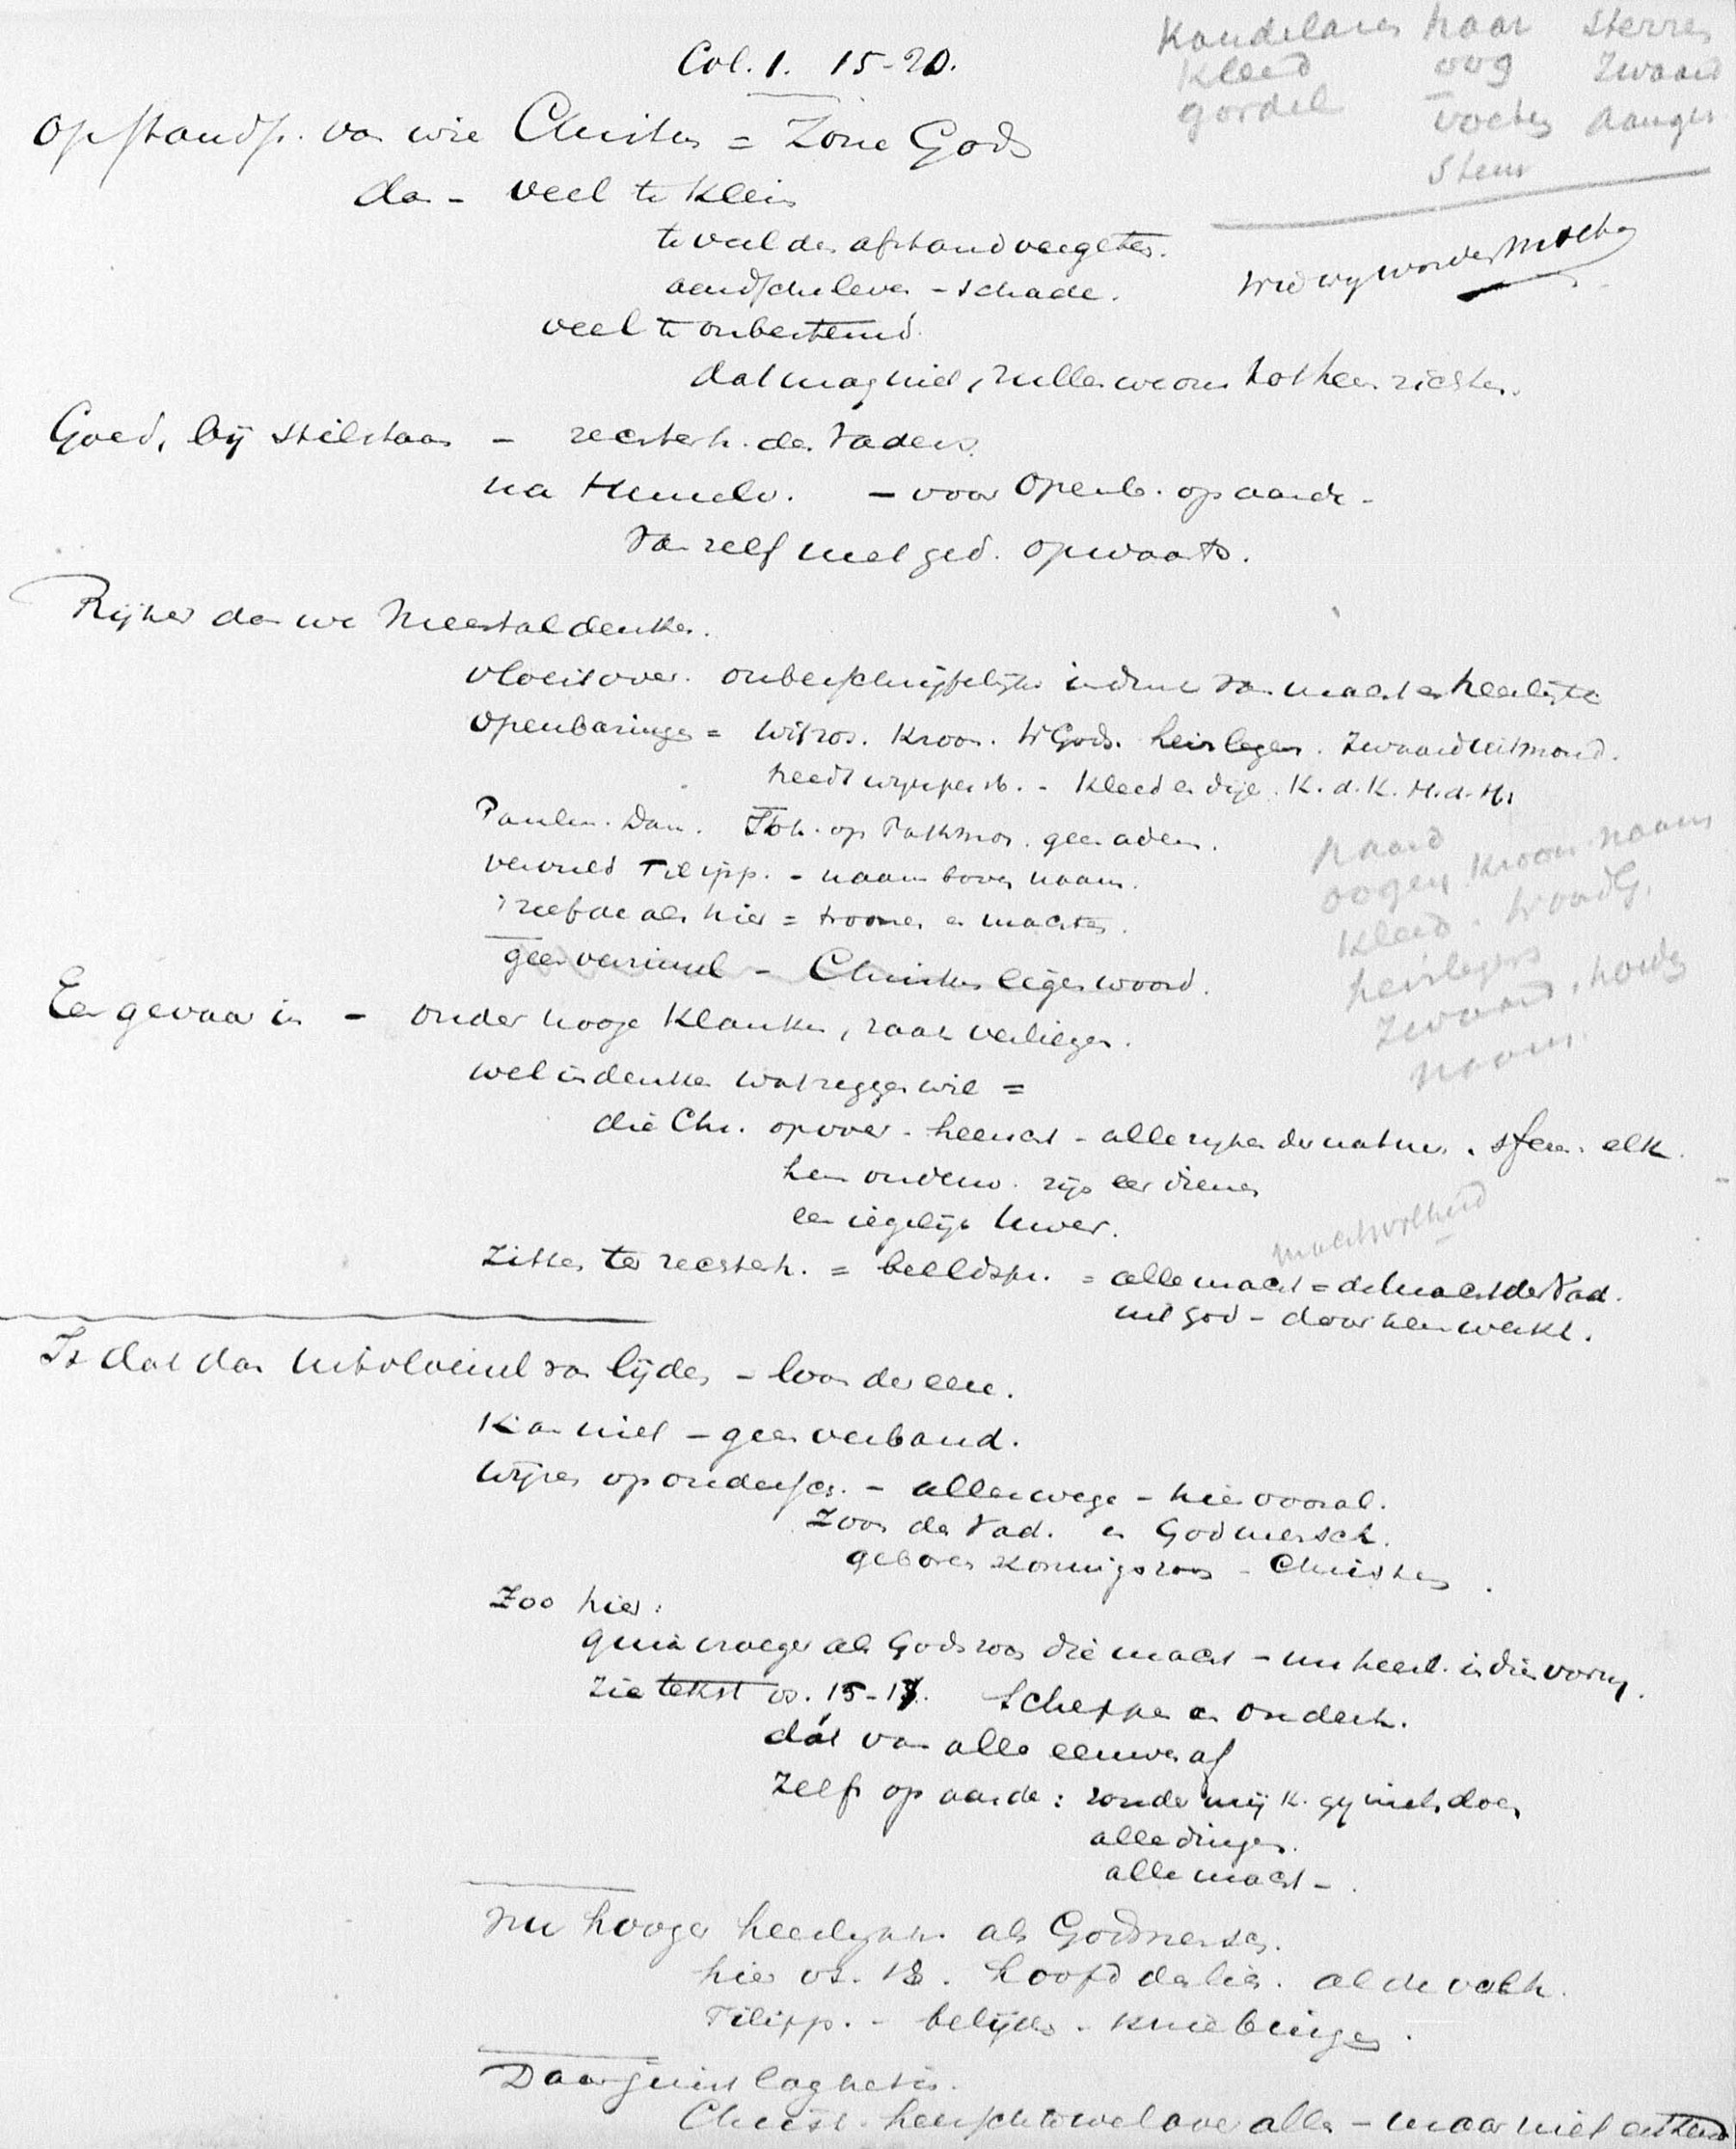 Col. 1. 15-20.
Kandelaren haar sterren
kleed oog zwaard
gordel voeten aange
stem
Opstandp. van wie Christus = Zone Gods
dan - veel te klein
te veel den afstand vergeten.
schade.
wed wy worden
veel te onbestemd.
dat mag niet, zullen we ons tot hem richten.
Goed, bij stilstaan - rechterh. des Vaders.
na Hemelv. - voor Openb. op aarde -
Van zelf met ged. opwaarts.
Rijker dan we meestal denken.
vloeit over. onbeschrijfelijke indruk van macht en heerlijkh
Openbaringe = wit ros. Kroon. W Gods. heirlegers. Zwaard uit mond.
treedt wijnpersb. - Kleed en dije. K. d. K. H. d. H.
Paulus. Dan. Joh. op Pathmos. geen adem.
vervuld Filipp. - naam boven naam.
zelfde als hier = troonen en machten.
geen verzinsel - Christus eigen woord.
haard
oogen Kroon naam
Kleed. WoordG.
heirlegers
Zwaard,
naam.
Een gevaar in - onder hooge klanken, zaak verliezen.
wel indenken wat zeggen wil =
die Chr. op voer - heerscht - alle rijken der natuur. sfeer. elk.
hem onderw. zijn eer dienen
een iegelijk
machtvolheid
Zitten ter rechterh. = beeldspr. = alle macht = de macht des Vad.
uit God - door hem werkt.
Is dat dan uitvloeisel van lijden - loon der eere.
Kan niet - geen verband.
Wijzen op ondersch. - allerwege - hier vooral.
Zoon des Vad. en Godmensch.
geboren Koningszoon - Christus.
Zoo hier:
vroeger als Gods zoon die macht - nu heerl. in die vorm.
Zie tekst vs. 15-17. Schepper en onderh.
dát van alle eeuwen af
Zelfs op aarde: zonder mij k. gy niets doen
alle dingen.
alle macht -.
Nu hooger heerlykh. als Godmensch.
hier vs. 18. hoofd der lich. al de volh.
Filipp. - belijden - knie buigen.
Daar juist lag het in.
Christ. heerscht wel over alles - maar niet